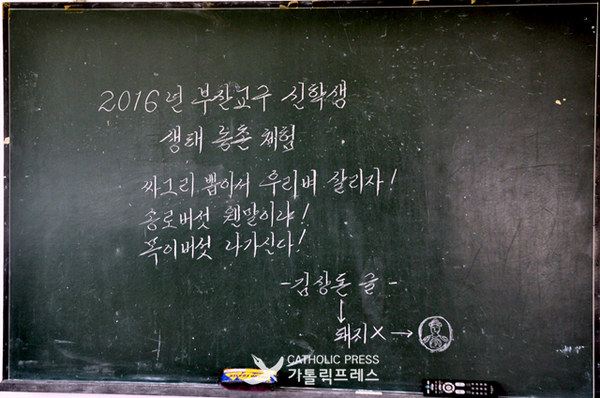 2016년 부산교구 신학생
생태 농촌 체험
싸그리 뽑아서 우리벼 살리자!
송로버섯 웬말이냐!
폭이버섯 나가신다!
-김상돈 글-
↓
돼지 X →
CATHOLIC PRESS
가톨릭프레스